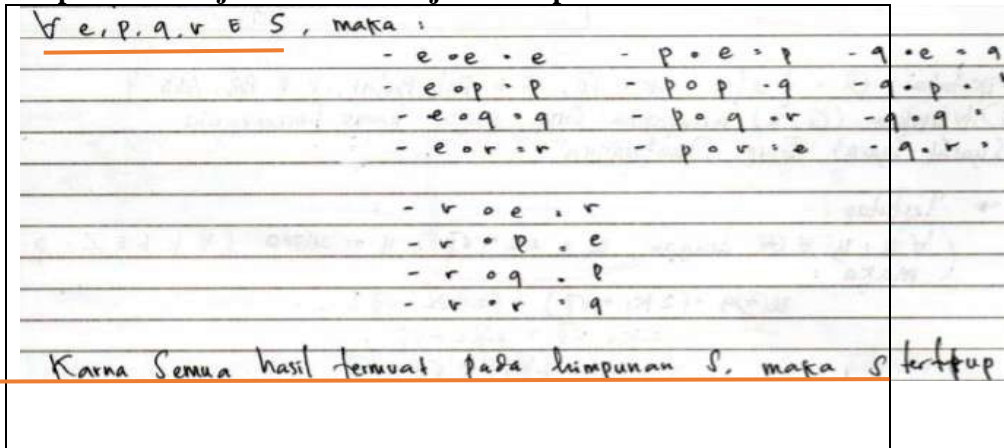 ∀ e, p, q, r ∈ S, maka :
- e ∘ e = e - p ∘ e = p - q ∘ e = q
- e ∘ p = p - p ∘ p = q - q ∘ p =
- e ∘ q = q - p ∘ q = r - q ∘ q =
- e ∘ r = r - p ∘ r = e - q ∘ r =
- r ∘ e = r
- r ∘ p = e
- r ∘ q = p
- r ∘ r = q
Karna Semua hasil termuat pada himpunan S, maka S tertutup